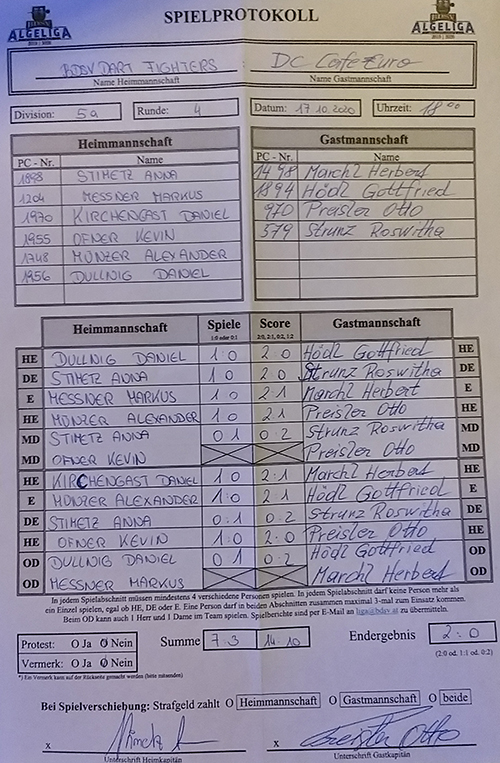 ALGELIGA
SPIELPROTOKOLL
ALGELIGA
BDSV DART FIGHTERS : DC Cafe Euro
Name Heimmannschaft Name Gastmannschaft
Division: 5a Runde: 4 Datum: 17.10.2020 Uhrzeit: 18 00
Heimmannschaft Gastmannschaft
PC - Nr. Name PC - Nr. Name
1898 STIMETZ ANNA 1498 Marchl Herbert
1204 MESSNER MARKUS 1894 Hödl Gottfried
1970 KIRCHENGAST DANIEL 970 Preisler Otto
1955 OFNER KEVIN 579 Strunz Roswitha
1748 MÜNZER ALEXANDER
1956 DULLNIG DANIEL
Heimmannschaft Spiele Score Gastmannschaft
1:0 oder 0:1 2:0, 2:1, 0:2, 1:2
HE DULLNIG DANIEL 1 0 2 0 Hödl Gottfried HE
DE STIMETZ ANNA 1 0 2 0 Strunz Roswitha DE
E MESSNER MARKUS 1 0 2 1 Marchl Herbert E
HE MÜNZER ALEXANDER 1 0 2 1 Preisler Otto HE
MD STIMETZ ANNA 0 1 0 2 Strunz Roswitha MD
MD OFNER KEVIN Preisler Otto MD
HE KIRCHENGAST DANIEL 1 0 2:1 Marchl Herbert HE
E MÜNZER ALEXANDER 1:0 2 1 Hödl Gottfried E
DE STIMETZ ANNA 0:1 0 2 Strunz Roswitha DE
HE OFNER KEVIN 1:0 2:0 Preisler Otto HE
OD DULLNIG DANIEL 0 1 0:2 Hödl Gottfried OD
OD MESSNER MARKUS Marchl Herbert OD
In jedem Spielabschnitt müssen mindestens 4 verschiedene Personen spielen. In jedem Spielabschnitt darf keine Person mehr als
ein Einzel spielen, egal ob HE, DE oder E. Eine Person darf in beiden Abschnitten zusammen maximal 3-mal zum Einsatz kommen.
Beim OD kann auch 1 Herr und 1 Dame im Team spielen. Spielberichte sind per E-Mail an liga@bdsv.at zu übermitteln.
Protest: O Ja O Nein Summe 7:3 14:10 Endergebnis 2:0
Vermerk: O Ja O Nein (2:0 od. 1:1 od. 0:2)
*) Ein Vermerk kann auf der Rückseite gemacht werden (bitte mitsenden)
Bei Spielverschiebung: Strafgeld zahlt O Heimmannschaft O Gastmannschaft O beide
x x Preisler Otto
Unterschrift Heimkapitän Unterschrift Gastkapitän